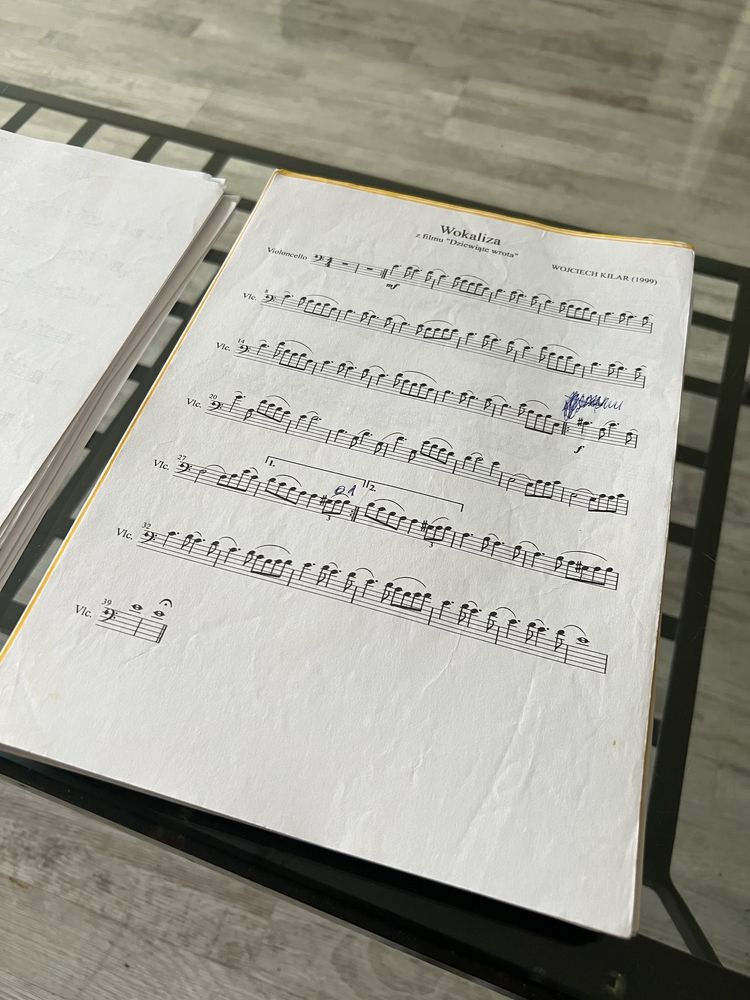 Wokaliza
z filmu "Dziewiąte wrota"
WOJCIECH KILAR (1999)
Violoncello
mf
8
Vlc.
14
Vlc.
20
Vlc.
f
27
Vlc.
1.
2.
3
3
32
Vlc.
39
Vlc.